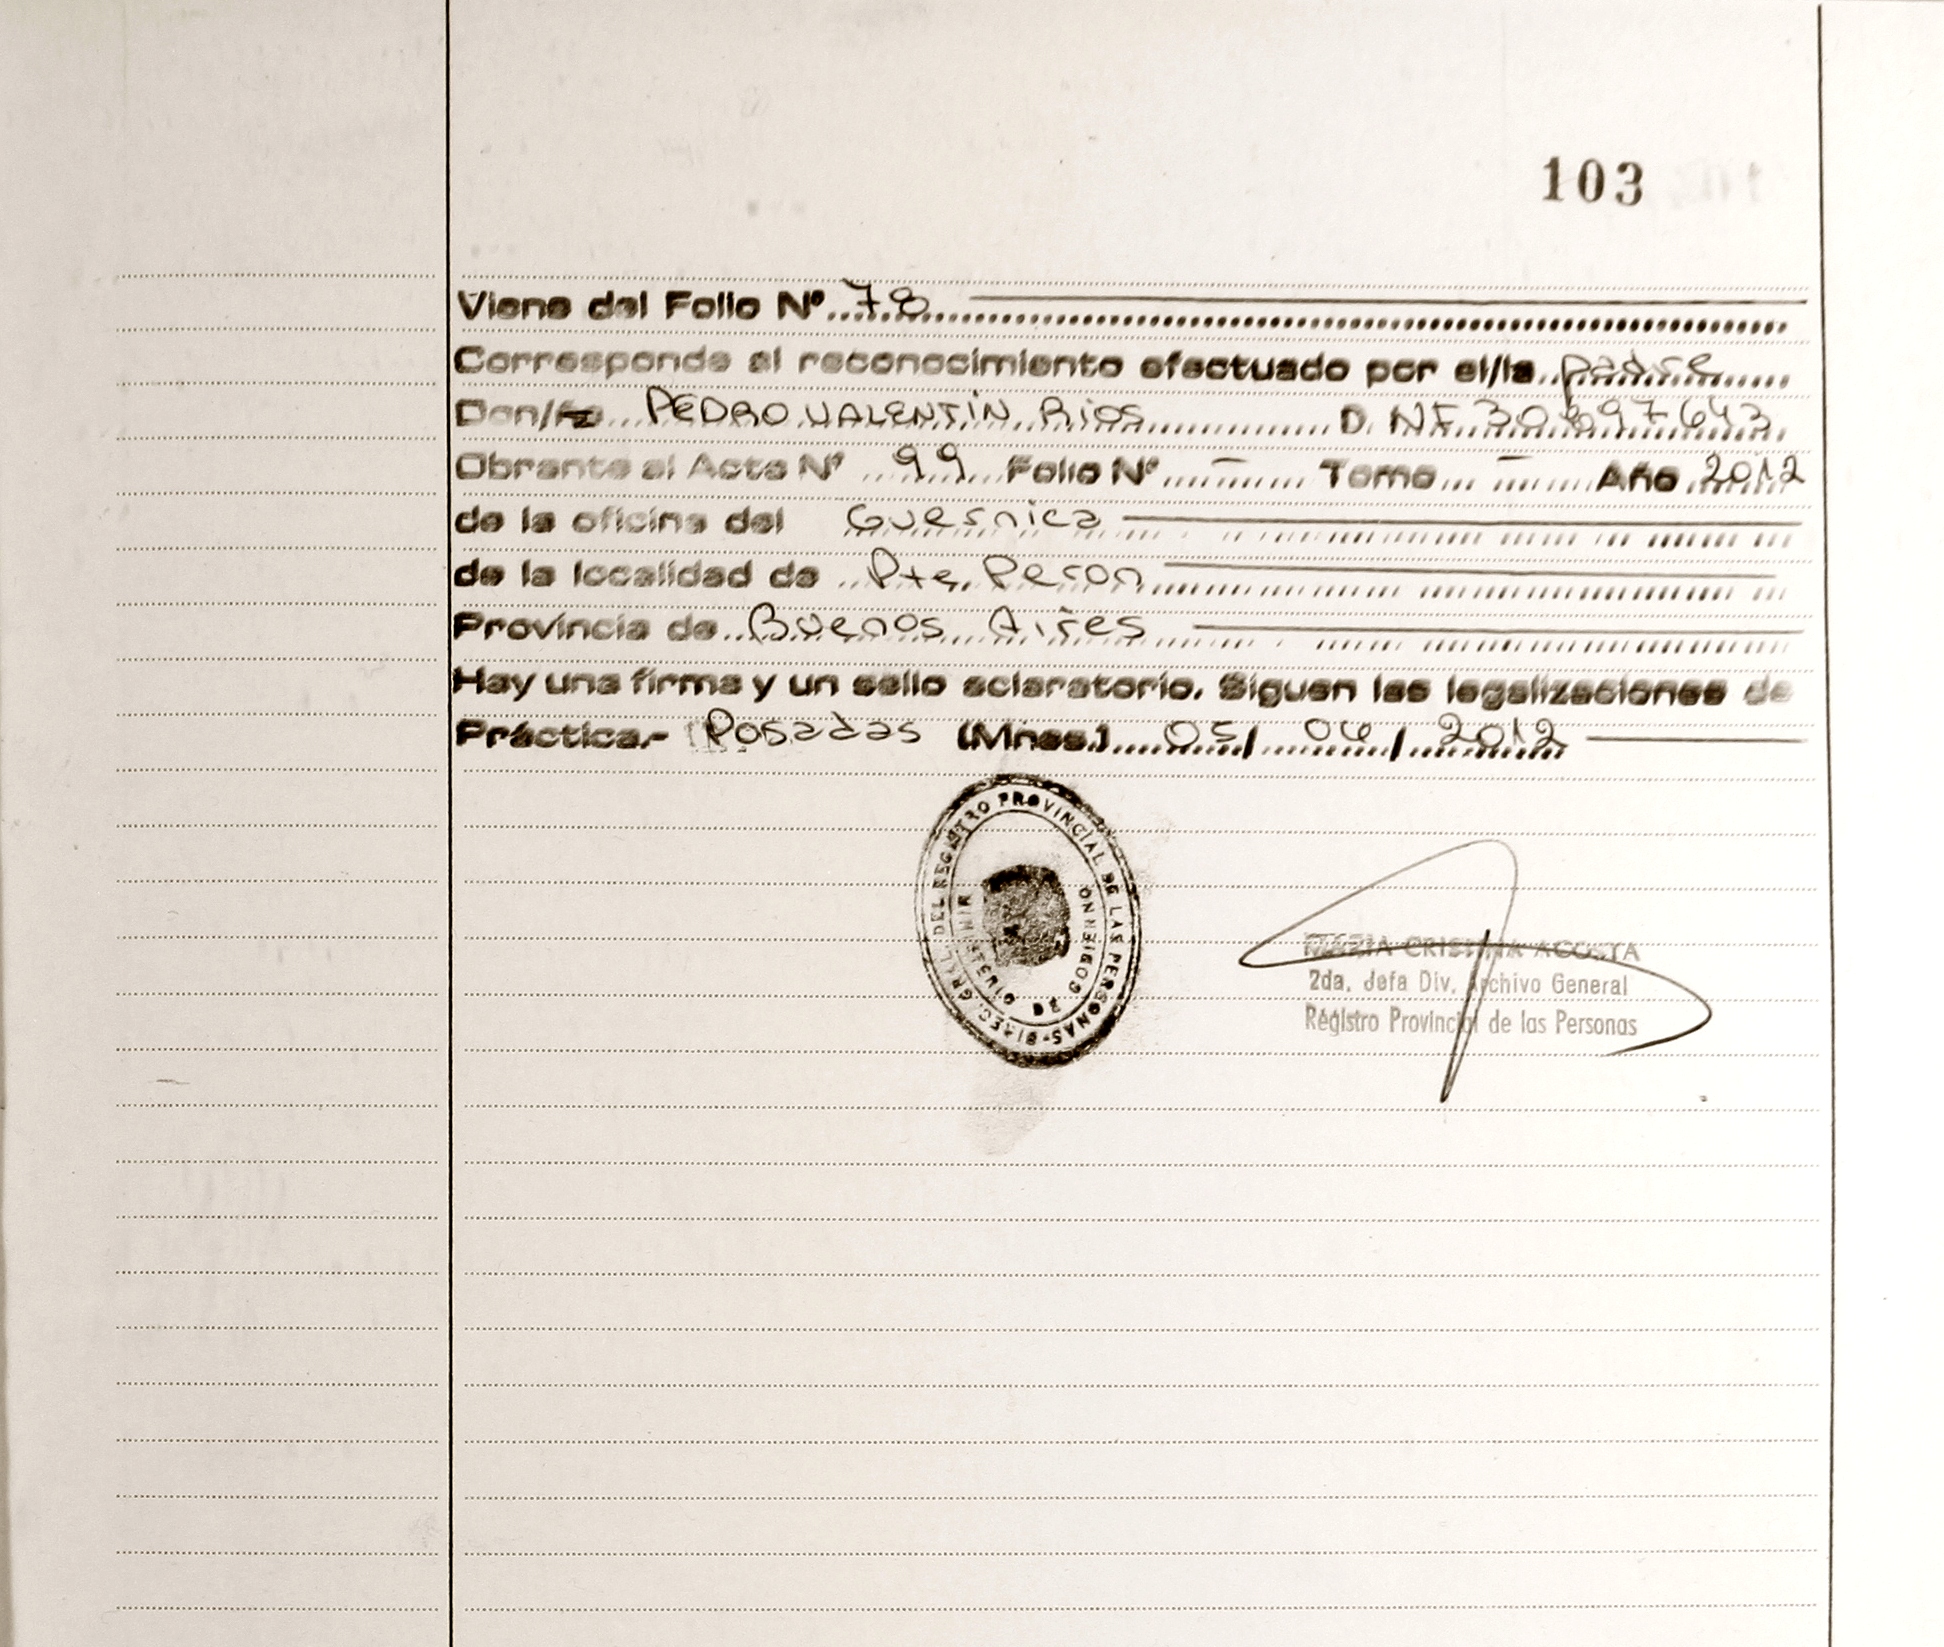 103
Viene del Folio Nº 78
Corresponde al reconocimiento efectuado por el/la padre
Don/ña PEDRO VALENTIN Rios D. NI. 30.897643
Obrante al Acta Nº 99 Folio Nº — Tomo — Año 2012
de la oficina del Guernica
de la localidad de Pte. Peron
Provincia de Buenos Aires
Hay una firma y un sello aclaratorio. Siguen las legalizaciones de
Práctica.- Posadas (Mnes.) 05/06/2012
DIREC. GRAL. DEL REGISTRO PROVINCIAL DE LAS PERSONAS
MINISTERIO DE GOBIERNO
MARIA CRISTINA ACOSTA
2da. Jefa Div. Archivo General
Registro Provincial de las Personas